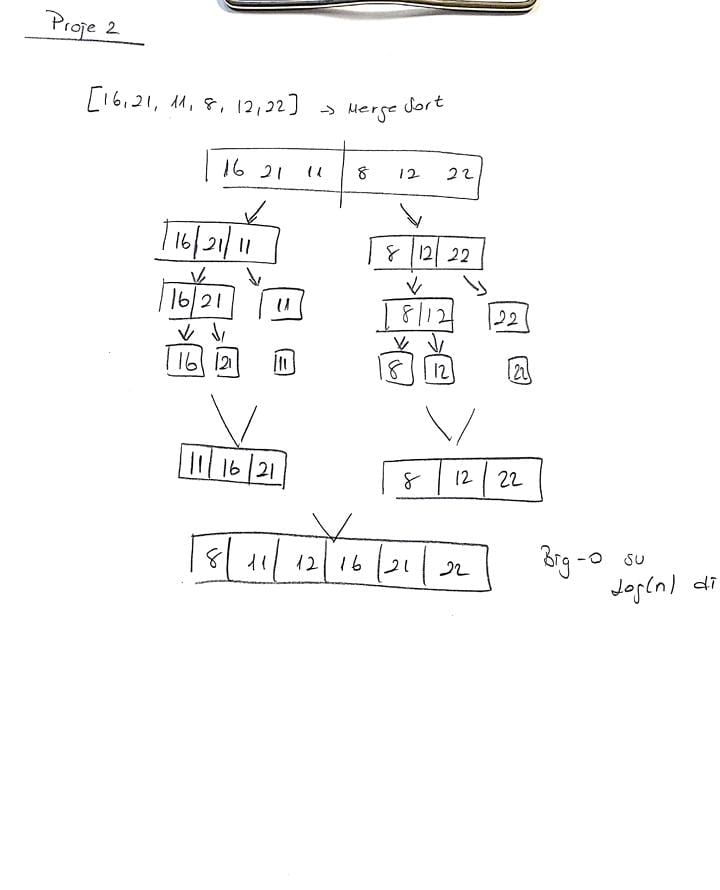 Proje 2
[16, 21, 11, 8, 12, 22] → Merge Sort
16 21 11 8 12 22
16 21 11 8 12 22
16 21 11 8 12 22
16 21 11 8 12 22
11 16 21 8 12 22
8 11 12 16 21 22
Big-O su
Log(n) di